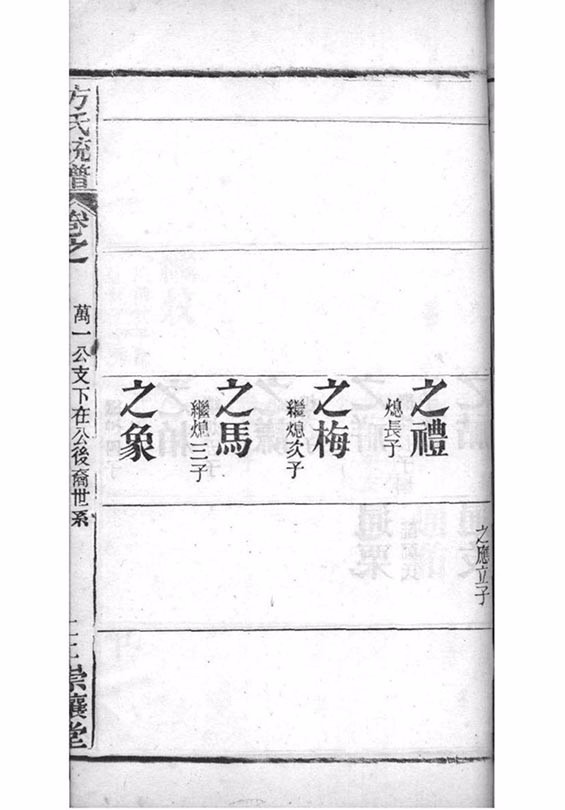 之應立子
之禮
熄長子
之梅
繼熄次子
之馬
繼熄三子
之象
方氏統譜
卷之
萬一公支下在公後裔世系
崇讓堂